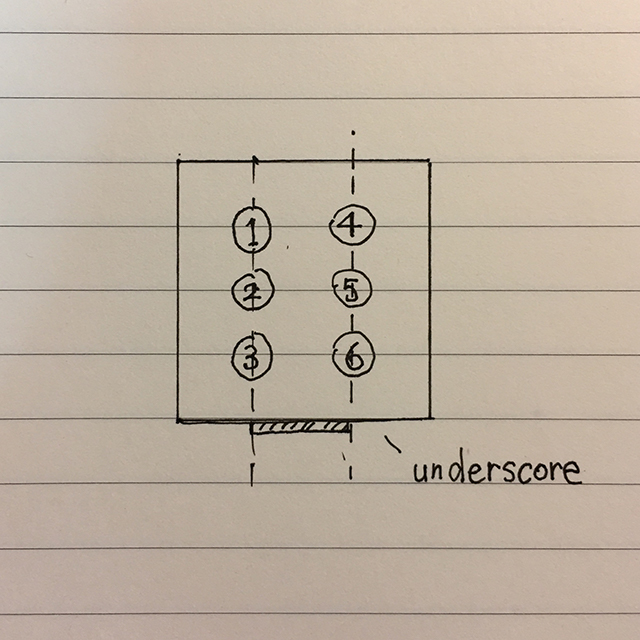 1 4
2 5
3 6
underscore